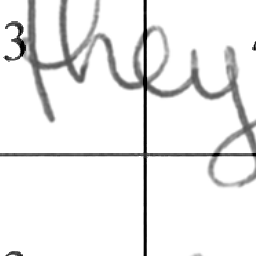 3 they